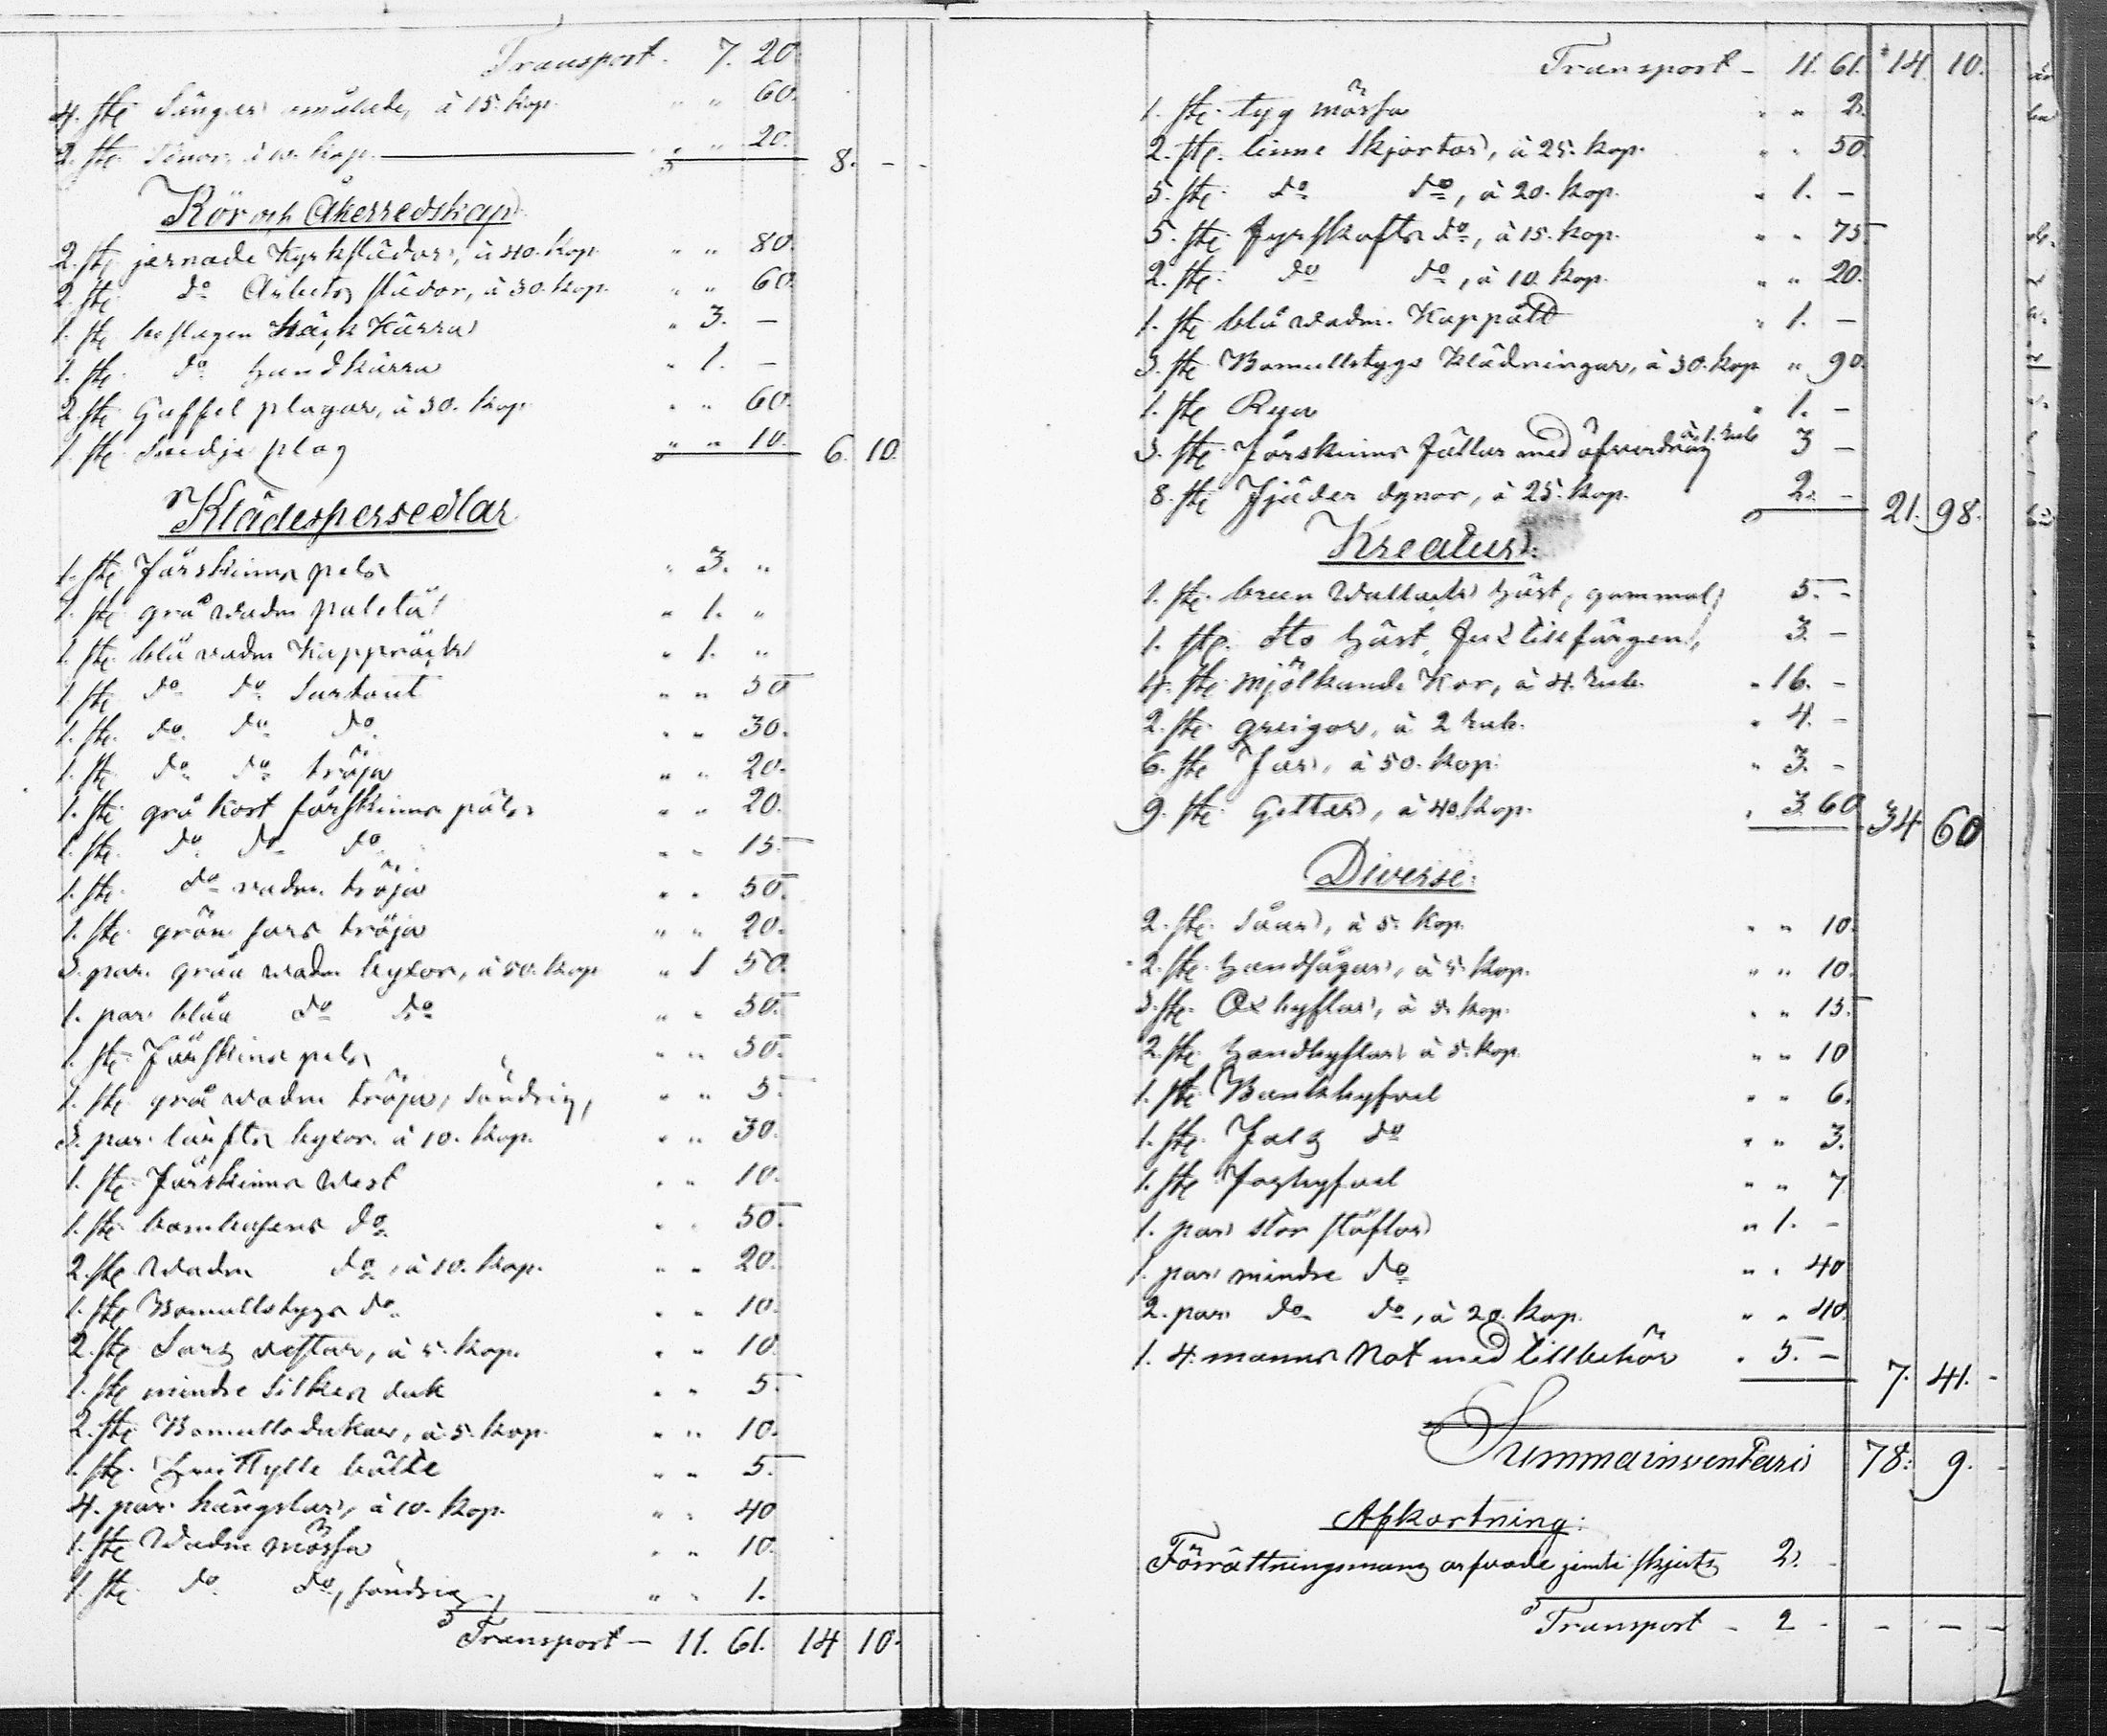 Transport - 7. 20.
4. st: Sängar omålade, à 15. kop. " " 60.
2. st: Tinor, à 10. kop. " " 20. 8. - -
Kör och Åkerredskap
2. st: jernade Kyrkslädar, à 40. kop. " " 80.
2. st: do Arbets slädor, à 30. kop. " " 60.
1. st: beslagen Kärra " 3. -
1. st: do handkärra " 1. -
2. st: Gaffel plogar, à 30. kop. " " 60.
1. st: plog " " 10. 6. 10.
Klädespersedlar
1. st: Fårskinns pels " 3. "
1. st: grå vadm paletå " 1. "
1. st: blå vadm Kapprock " 1. "
1. st: do do Surtout " " 50
1. st: do do do " " 30.
1. st: do do tröja " " 20.
1. st: grå kort fårskinns päls " " 20.
1. st: do do do " " 15.
1. st: do vadm. tröja " " 50.
1. st: grön sars tröja " " 20.
3. par. gråa vadm byxor, à 50. kop " 1 50.
1. par blåa do do " " 50.
1. st: Fårskins pels " " 50.
1. st: grå vadm tröja, söndrig, " " 5.
3. par. lärfts byxor. à 10. kop. " " 30.
1. st: Fårskinns West " " 10.
1. st: bomhasens do " " 50.
2. st: Wadm do, à 10. kop. " " 20.
1. st: Bomullstygs do " " 10.
2. st: Sarz à 5. kop. " " 10.
1. st: mindre silkes duk " " 5.
2. st: Bomullsdukar, à 5. kop. " " 10.
1. st: bälte " " 5.
4. par. hängslar, à 10. kop. " " 40
1. st: Wadm mössa " " 10.
1. st: do do, söndrig, " " 1.
Transport - 11. 61. 14 10.
Transport - 11. 61. 14. 10.
1. st: tyg mössa " " 2.
2. st: linne Skjortor, à 25. kop. " " 50.
5. st: do do, à 20. kop. " 1. -
5. st: fyrskafts do, à 15. kop. " " 75.
2. st: do do, à 10. kop. " " 20.
1. st: blå vadm. Kappått " 1. -
3. st: Bomullstygs Klädningar, à 30. kop " 90.
1. st: Rya " 1. -
3. st: Fårskinns Fällar med öfverdrag à 1. rub 3 -
8. st: Fjäder dynor, à 25. kop. 2. - 21. 98.
Kreatur:
1. st: brun Wallack häst, gammal, 5. -
1. st: Sto häst, fux till färgen, 3. -
4. st: mjölkande Kor, à 4. rub. " 16. -
2. st: qveigor, à 2 rub. " 4. -
6. st: Får, à 50. kop. " 3. -
9. st: Getter, à 40. kop. " 3. 60 34 60
Diverse:
2. st: Såar, à 5. kop. " " 10.
2. st: handsågar, à 5. kop. " " 10.
3. st: Ox hyflar, à 5. kop. " " 15.
2. st: handhyflar à 5. kop. " " 10
1. st: Bankhyfvel " " 6.
1. st: Falz do " " 3.
1. st: Foghyfvel " " 7
1. par stor stöflor " 1. -
1. par mindre do " " 40
2. par do do, à 20. kop. " " 40.
1. 4. manns Not med tillbehör " 5. - 7. 41. -
Summa inventari 78. 9. -
Afkortning:
Förrättningsmans arfvode jemte skjuts 2. -
Transport - 2 - - - -